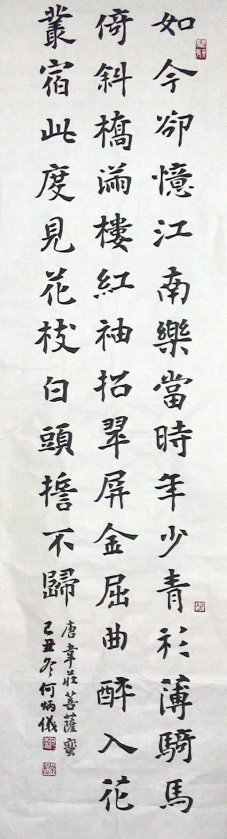 如今卻憶江南樂當時年少青衫薄騎馬
倚斜橋滿樓紅袖招翠屏金屈曲醉入花
叢宿此度見花枝白頭誓不歸
唐韋莊菩薩蠻
己丑冬何炳儀